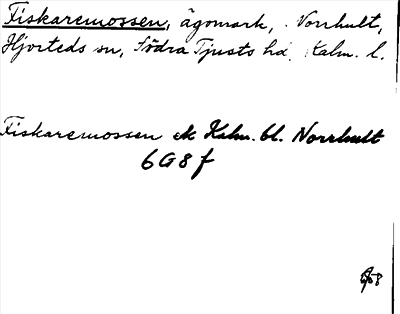 Fiskaremossen, ägomark, Norrhult,
Hjorteds sn, Södra Tjusts hd, Kalm. l.
Fiskaremossen ek Kalm. bl. Norrhult
6G8f